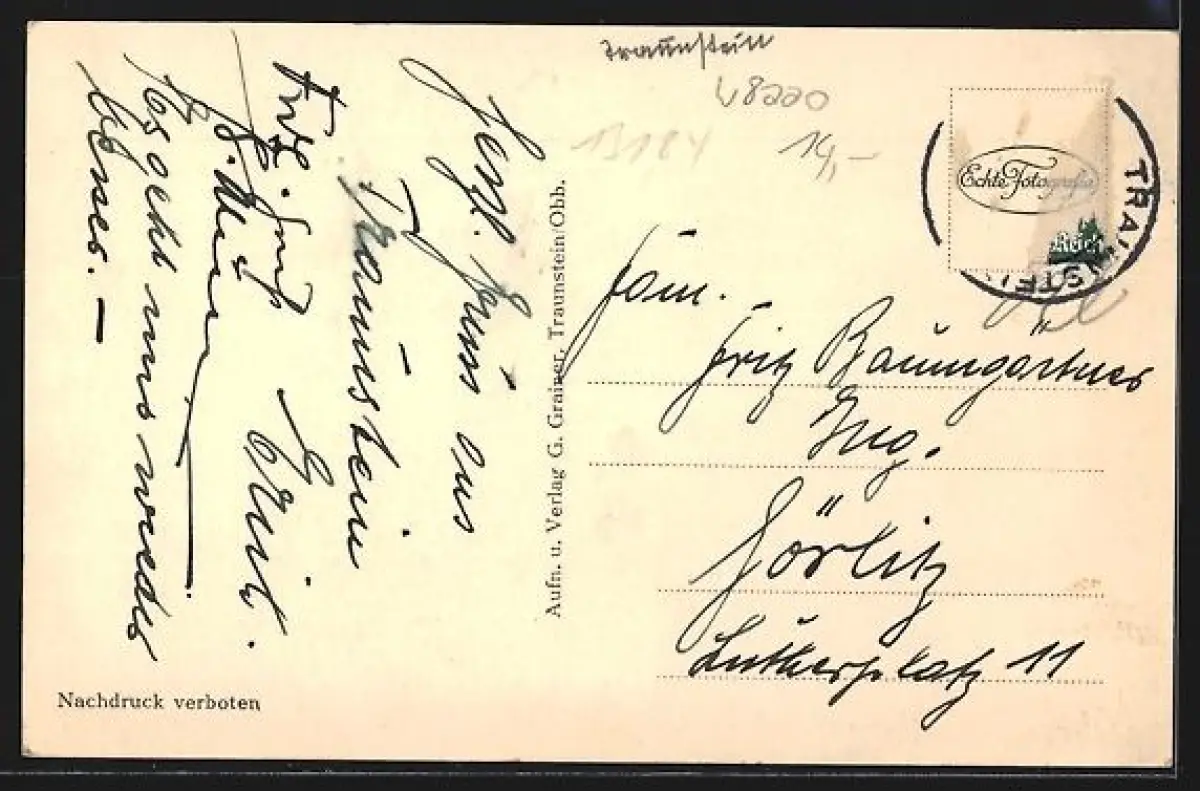 Traunstein
48220
13184
14,-
Echte Fotografie
TRAUNSTEI
Reich
Herzl. Grüß aus
Traunstein
Frdl. Gruß
Es geht uns wieder
besser. –
Aufn. u. Verlag G. Grainer, Traunstein/Obb.
Fam.
Fritz Baumgärtner
Ing.
Görlitz
Lutherplatz 11
Nachdruck verboten